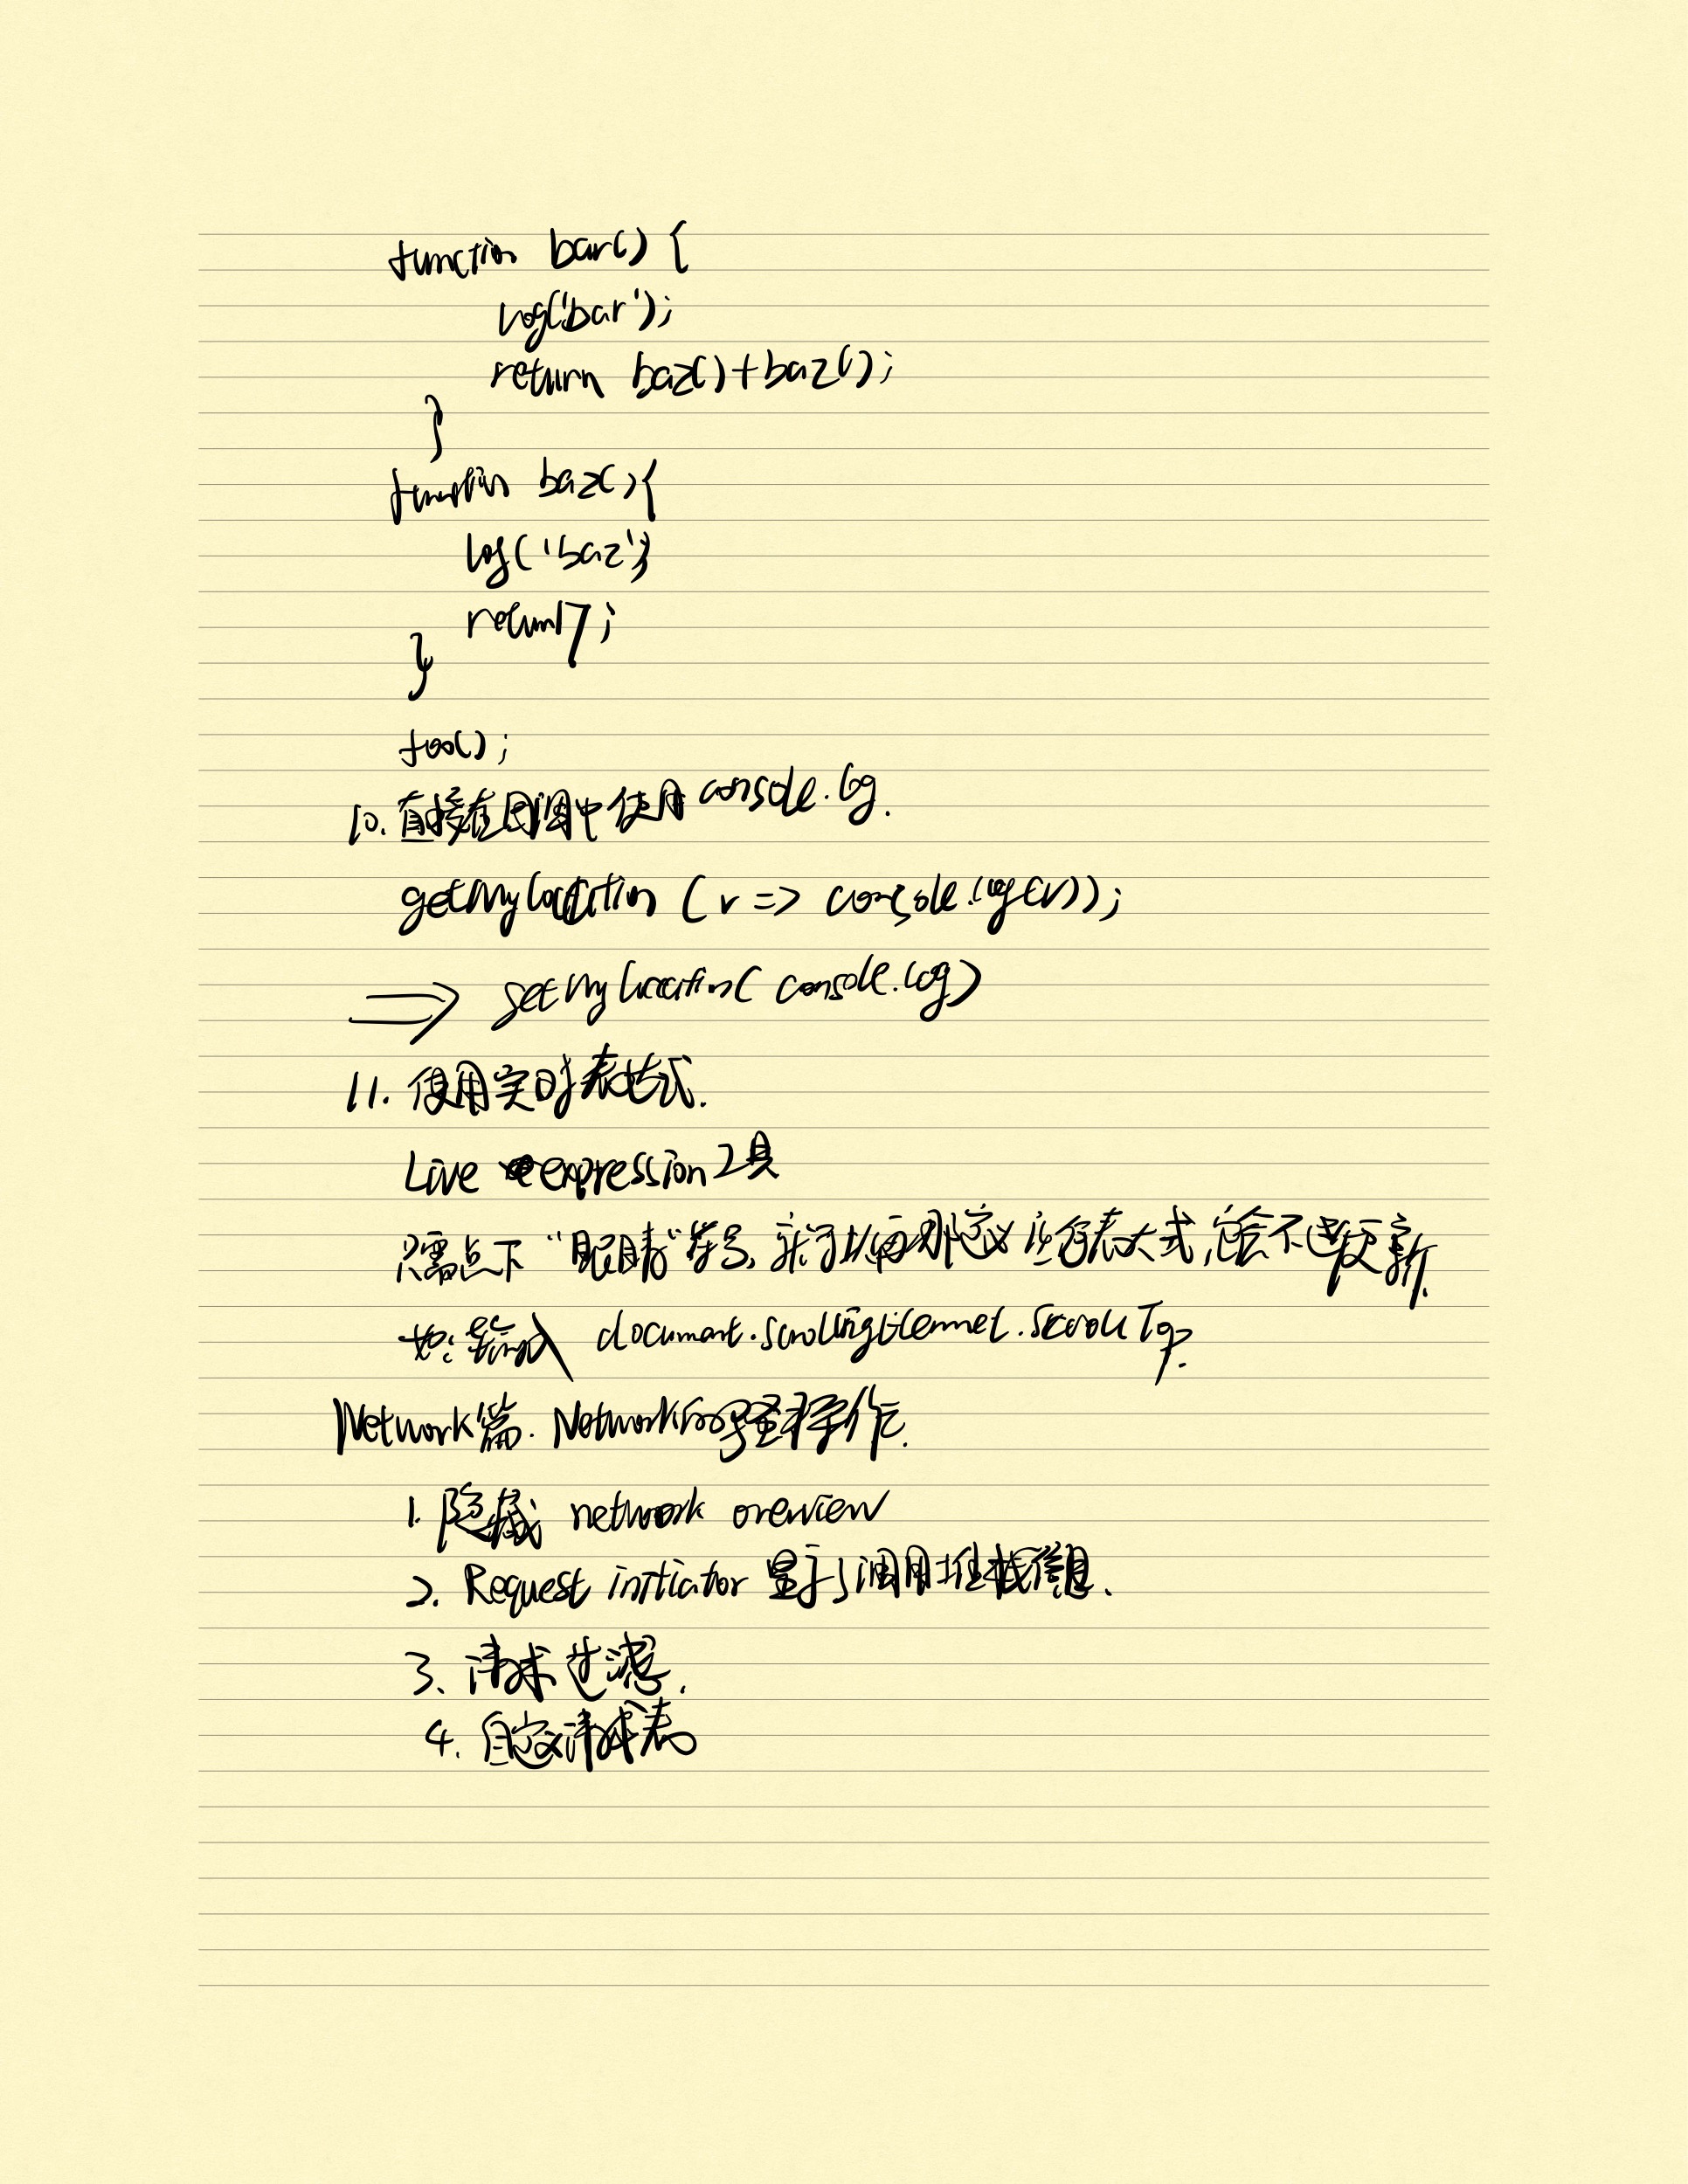 function bar() {
log('bar');
return baz()+baz();
}
function baz(){
log('baz')
return 17;
}
foo();
10. 直接在回调中使用console.log.
getMyLocation (v => console.log(v));
⇒ getMyLocation( console.log)
11. 使用实时表达式.
Live expression工具
只需点下“眼睛”符号, 就可以在那定义任何表达式, 它会不断更新.
如: 输入 document.scrollingElemnet.scrollTop.
Network篇. Network的骚操作.
1. 隐藏 network overview
2. Request initiator 显示了调用堆栈信息.
3、请求过滤.
4. 自定义请求表